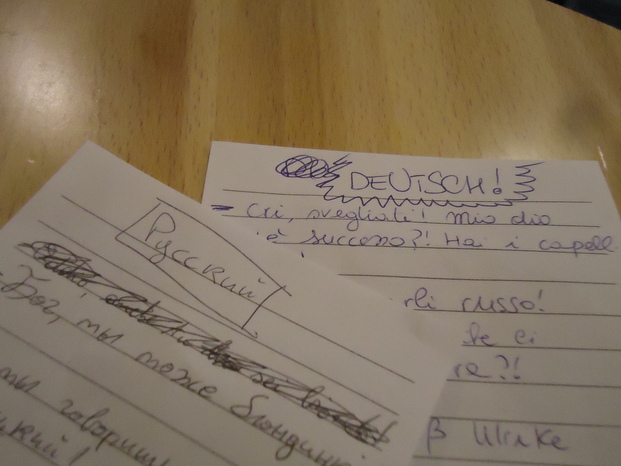 Русский
Бог, мы може блондинк
мы говориш
DEUTSCH!
- Cri, svegliati! Mio dio
è successo?! Hai i capell
rli russo!
te ci
ra?!
β Ulrike